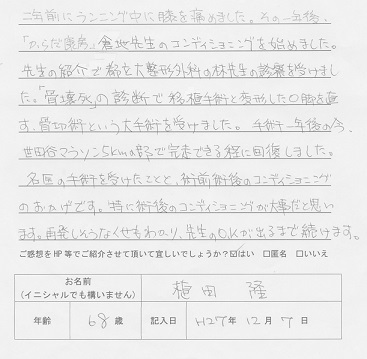 二年前にランニング中に膝を痛めました。その一年後、
「からだ廣房」倉地先生のコンディショニングを始めました。
先生の紹介で都立大整形外科の林先生の診察を受けまし
た。「骨壊死」の診断で移植手術と変形したO脚を直
す、骨切術という大手術を受けました。手術一年後の今、
世田谷マラソン5kmの部で完走できる程に回復しました。
名医の手術を受けたことと、術前術後のコンディショニング
のおかげです。特に術後のコンディショニングが大事だと思い
ます。再発しそうなくせもわかり、先生のO.Kが出るまで続けます。
ご感想をHP等でご紹介させて頂いて宜しいでしょうか？☑はい □匿名 □いいえ
お名前
(イニシャルでも構いません) 植田 隆
年齢 68歳 記入日 H27年 12月 7日